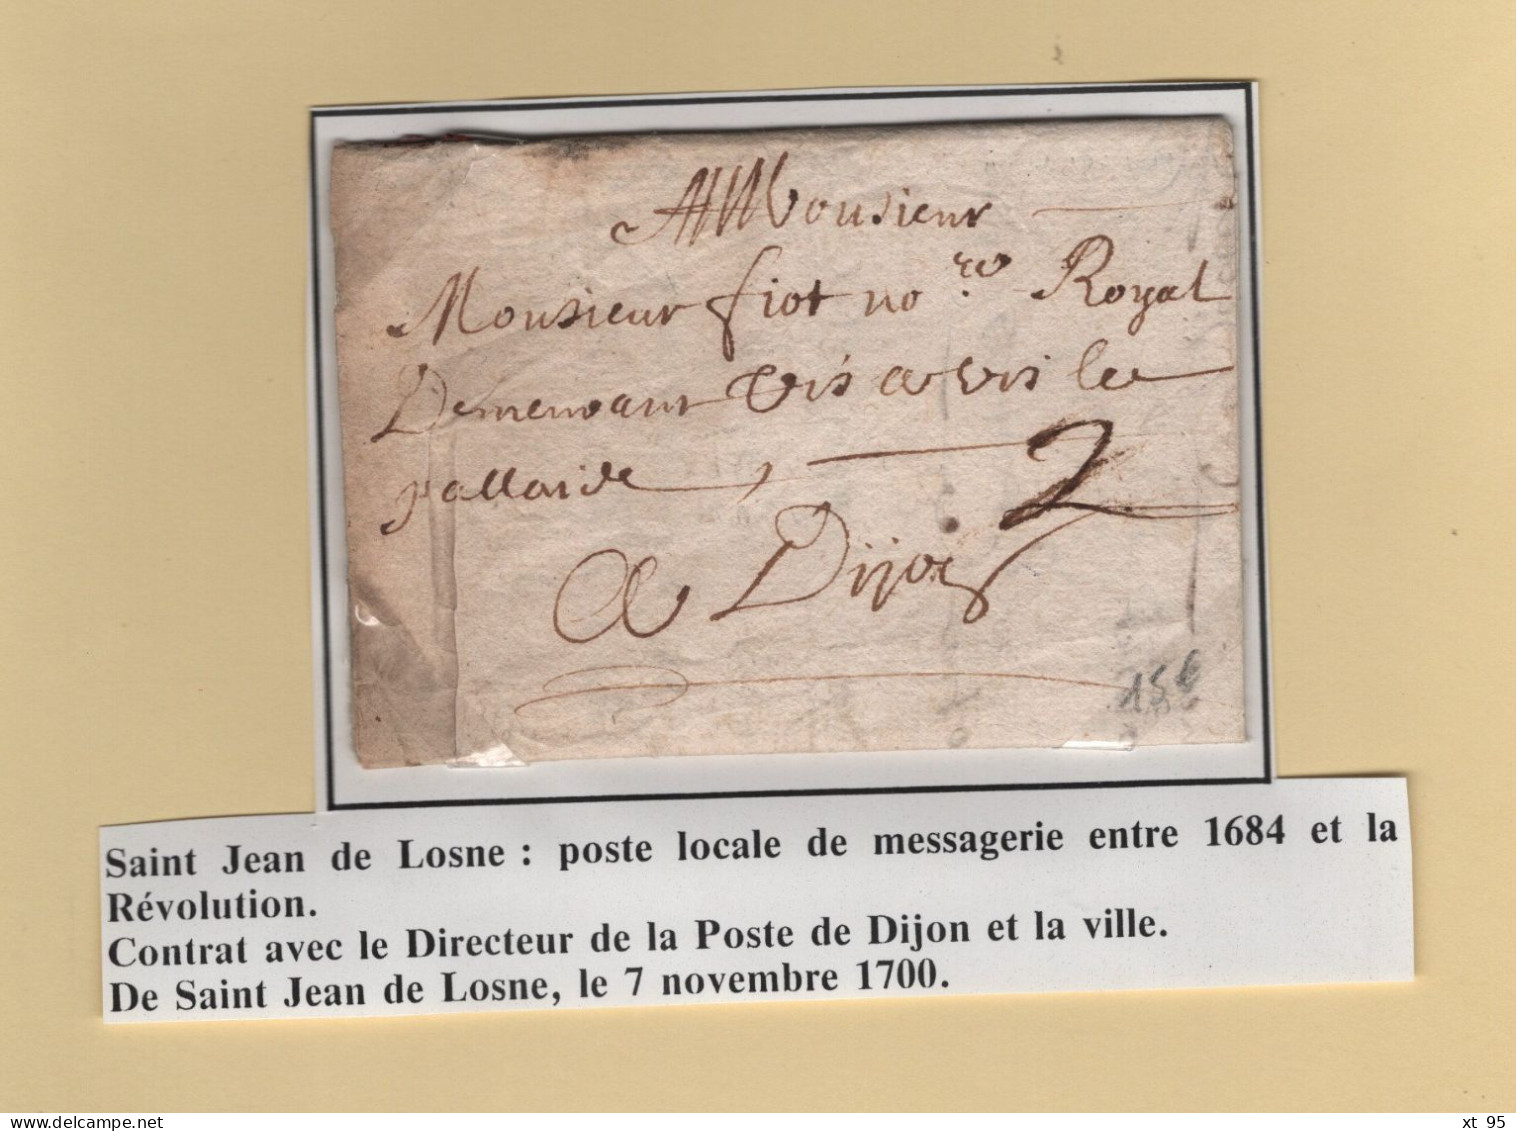 A Monsieur
Monsieur fiot no.re Royal
Demeurant vis a vis le
pallaide 2
A Dijon
15€
Saint Jean de Losne : poste locale de messagerie entre 1684 et la
Révolution.
Contrat avec le Directeur de la Poste de Dijon et la ville.
De Saint Jean de Losne, le 7 novembre 1700.
www.delcampe.net
xt 95